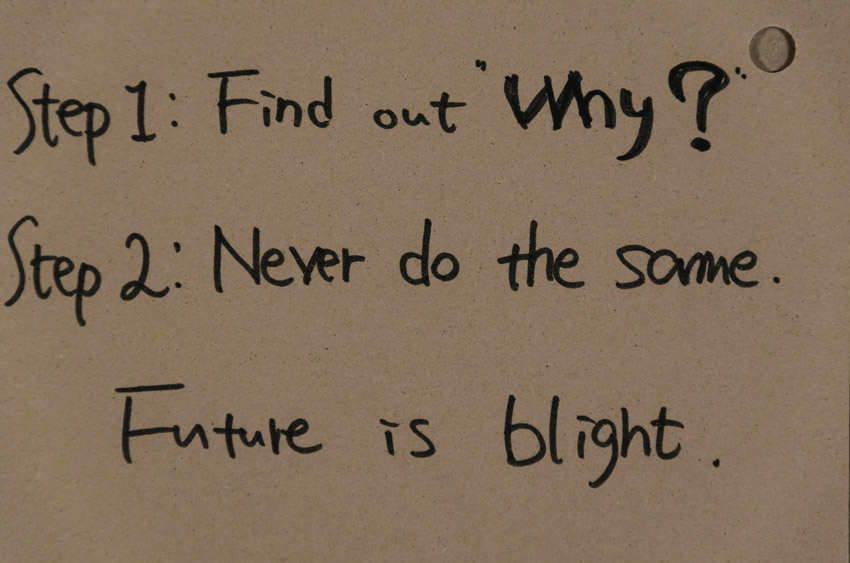 Step 1: Find out "Why?"
Step 2: Never do the same.
Future is blight.